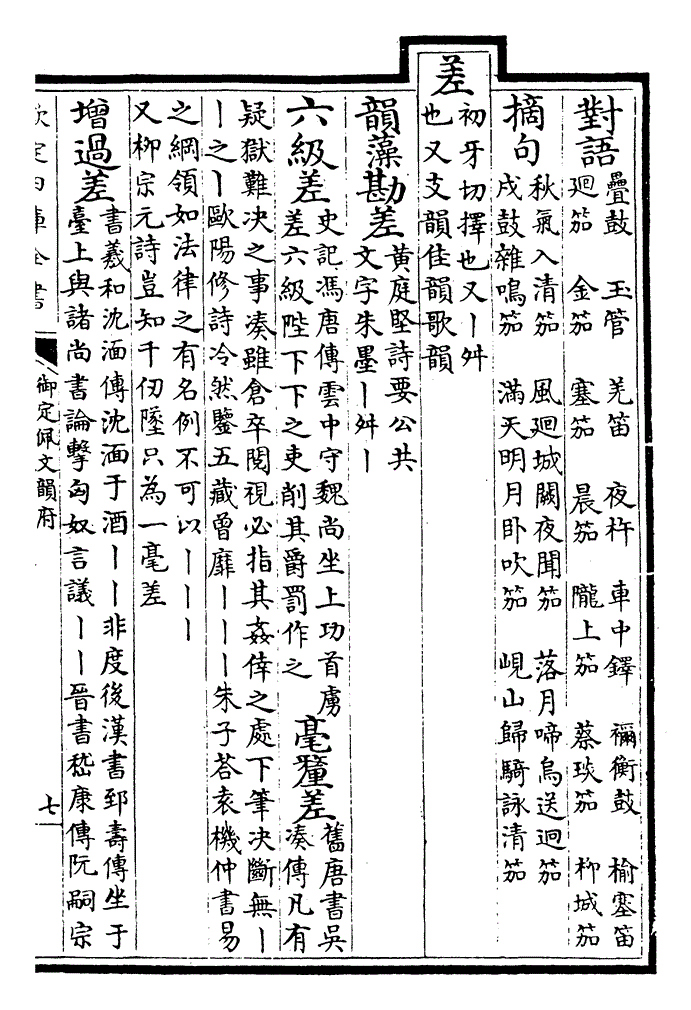 對語
疊鼓 玉管 羌笛 夜杵 車中鐸 禰衡鼓 榆塞笛
廻笳 金笳 塞笳 晨笳 隴上笳 蔡琰笳 柳城笳
摘句
秋氣入清笳 風廻城闕夜聞笳 落月啼烏送迥笳
戍鼓雜鳴笳 滿天明月卧吹笳 峴山歸騎詠清笳
差
初牙切擇也又丨舛
也又支韻佳韻歌韻
韻藻
勘差
黃庭堅詩要公共
文字朱墨丨舛丨
六級差
史記馮唐傳雲中守魏尚坐上功首虜
差六級陛下下之吏削其爵罰作之
毫釐差
舊唐書吳
湊傳凡有
疑獄難决之事湊雖倉卒閱視必指其姦倖之處下筆决斷無丨
丨之丨歐陽修詩冷然鑒五藏曾靡丨丨丨朱子荅袁機仲書易
之綱領如法律之有名例不可以丨丨丨
又柳宗元詩豈知千仞墜只為一毫差
增
過差
書羲和沈湎傳沈湎于酒丨丨非度後漢書郅壽傳坐于
臺上與諸尚書論擊匈奴言議丨丨晉書嵇康傳阮嗣宗
欽定四庫全書
御定佩文韻府
七